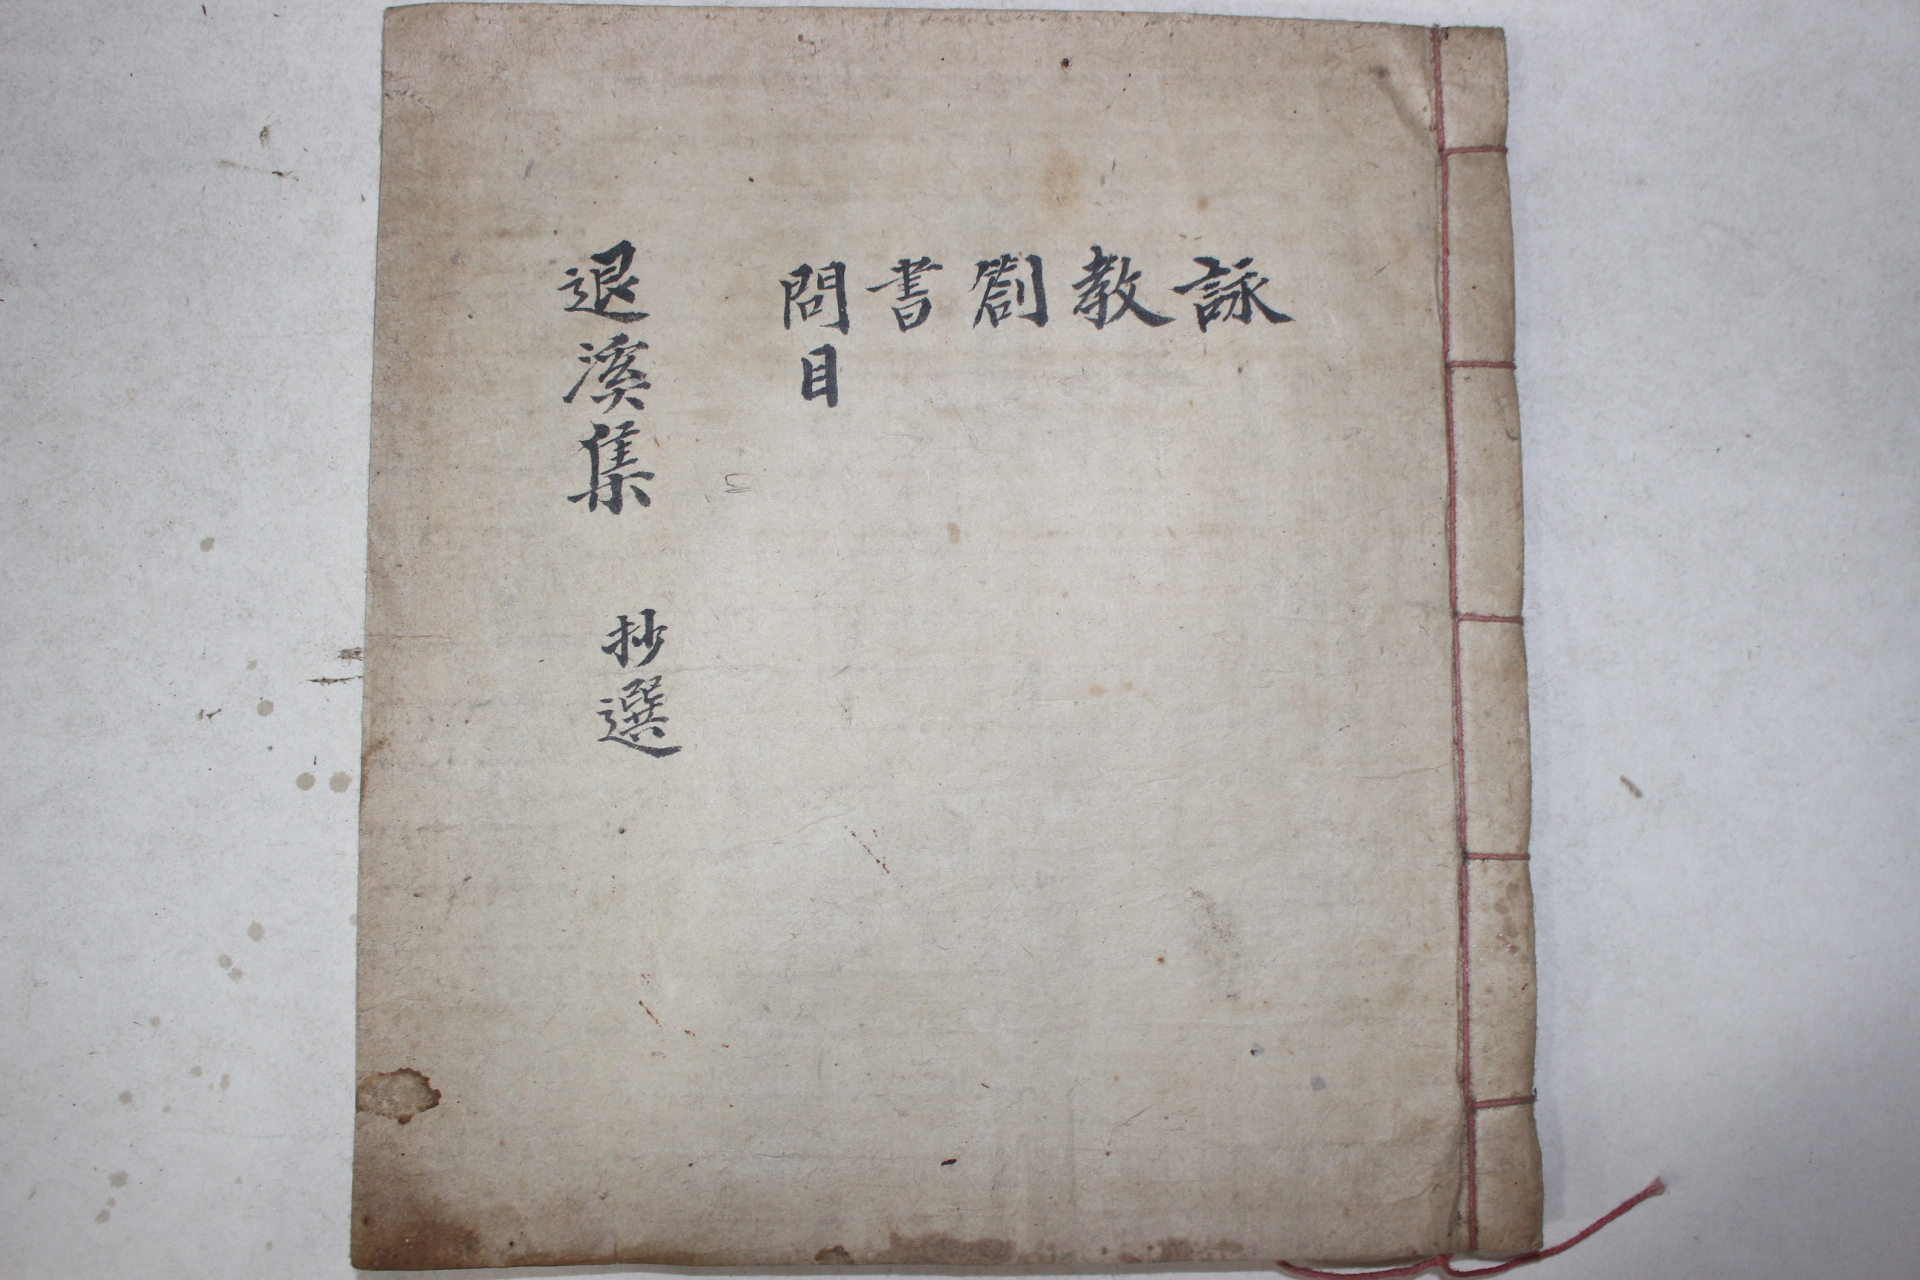 詠
教
劄
書
問目
退溪集 抄選